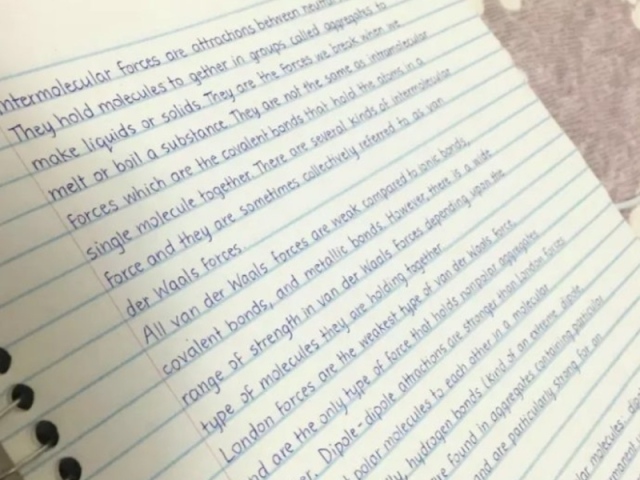 Intermolecular forces are attractions between neutral
They hold molecules to gether in groups called aggregates to
make liquids or solids. They are the forces we break when we
melt or boil a substance. They are not the same as intramolecular
forces which are the covalent bonds that hold the atoms in a
single molecule together. There are several kinds of intermolecular
force and they are sometimes collectively referred to as van
der Waals forces.
All van der Waals forces are weak compared to ionic bonds,
covalent bonds, and metallic bonds. However, there is a wide
range of strength in van der Waals forces depending upon the
type of molecules they are holding together
London forces are the weakest type of van der Waals force
nd are the only type of force that holds nonpolar aggregates
er. Dipole-dipole attractions are stronger than London forces
polar molecules to each other in a molecular
ly, hydrogen bonds (kind of an extreme dipole
re found in aggregates containing particular
and are particularly strong for an
lar molecules